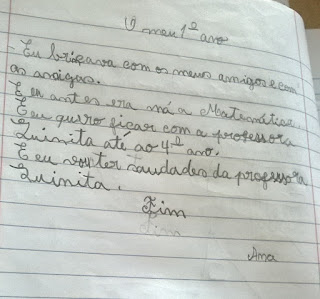 O meu 1º ano
- Eu brigava com os meus amigos e com
as amigas.
E eu antes era má a Matemática.
E eu quero ficar com a professora
Quinita até ao 4º ano.
E eu vou ter saudades da professora
Quinita.
Fim
Fim
Ana